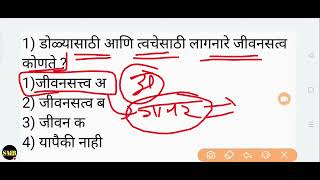 1) डोळ्यासाठी आणि त्वचेसाठी लागनारे जीवनसत्व
कोणते ?
1)जीवनसत्त्व अ
2) जीवनसत्व ब
3) जीवन क
4) यापैकी नाही
अ
गाजर
SMB